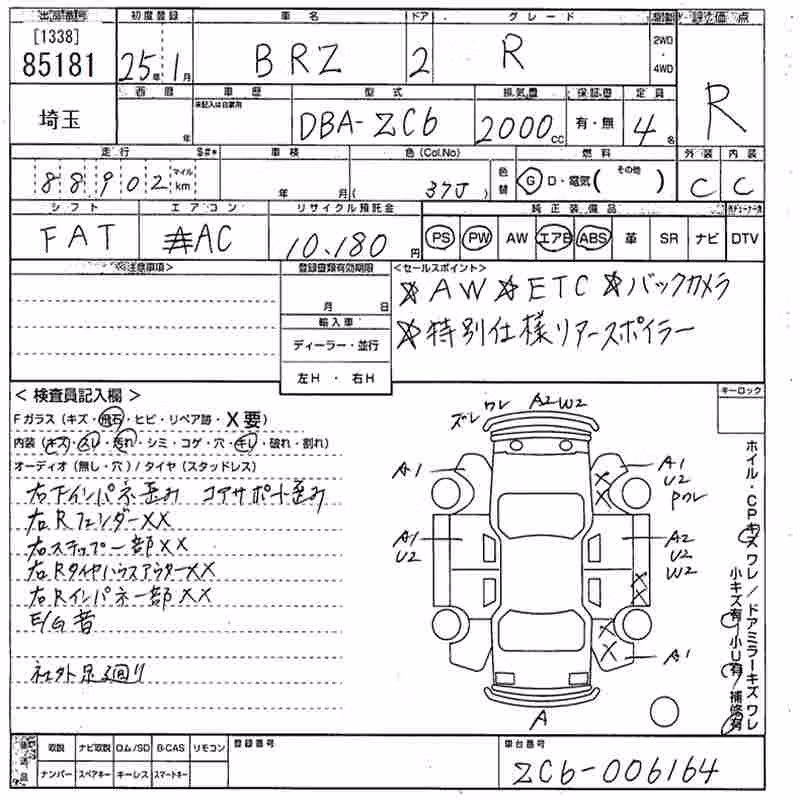 出品番号 初度登録 車名 ドア グレード 駆動 評価点
[1338]
85181 25年1月 BRZ 2 R 2WD・4WD R
西暦 車歴 型式 排気量 保証書 定員
未記入は自家用
埼玉 年 DBA-ZC6 2000cc 有・無 4名
走行 $#* 車検 色(Col.No) 燃料 外装 内装
88902 マイル km 年 月( 37J ) 色替 Ⓖ D・電気( その他 ) C C
シフト エアコン リサイクル預託金 純正装備品
FAT AAC 10,180円 PS PW AW エアB ABS 革 SR ナビ DTV
<注意事項> 登録書類有効期限 <セールスポイント>
月 日
☆AW ☆ETC ☆バックカメラ
輸入車
☆特別仕様リアースポイラー
ディーラー・並行
左H・右H
<検査員記入欄> キーロック
Fガラス(キズ・飛石・ヒビ・リペア跡・X要)
内装(キズ・スレ・汚れ・シミ・コゲ・穴・キレ・破れ・割れ)
オーディオ(無し・穴)/タイヤ(スタッドレス)
右下インパネ歪み コアサポート歪み
右RフェンダーXX
右ステップ一部XX
右RタイヤハウスアウターXX
右Rインパネ一部XX
E/G音
社外足廻り
ズレ ワレ A2 W2
A1
A1
U2
Pワレ
A1
U2
A2
U2
W2
A1
A
ホイル・CPキズワレ/ドアミラーキズワレ
小キズ有 小U有 補修有
取説 ナビ取説 ロム/SD B-CAS リモコン 登録番号 車台番号
ナンバー スペアキー キーレス スマートキー
ZC6-006164